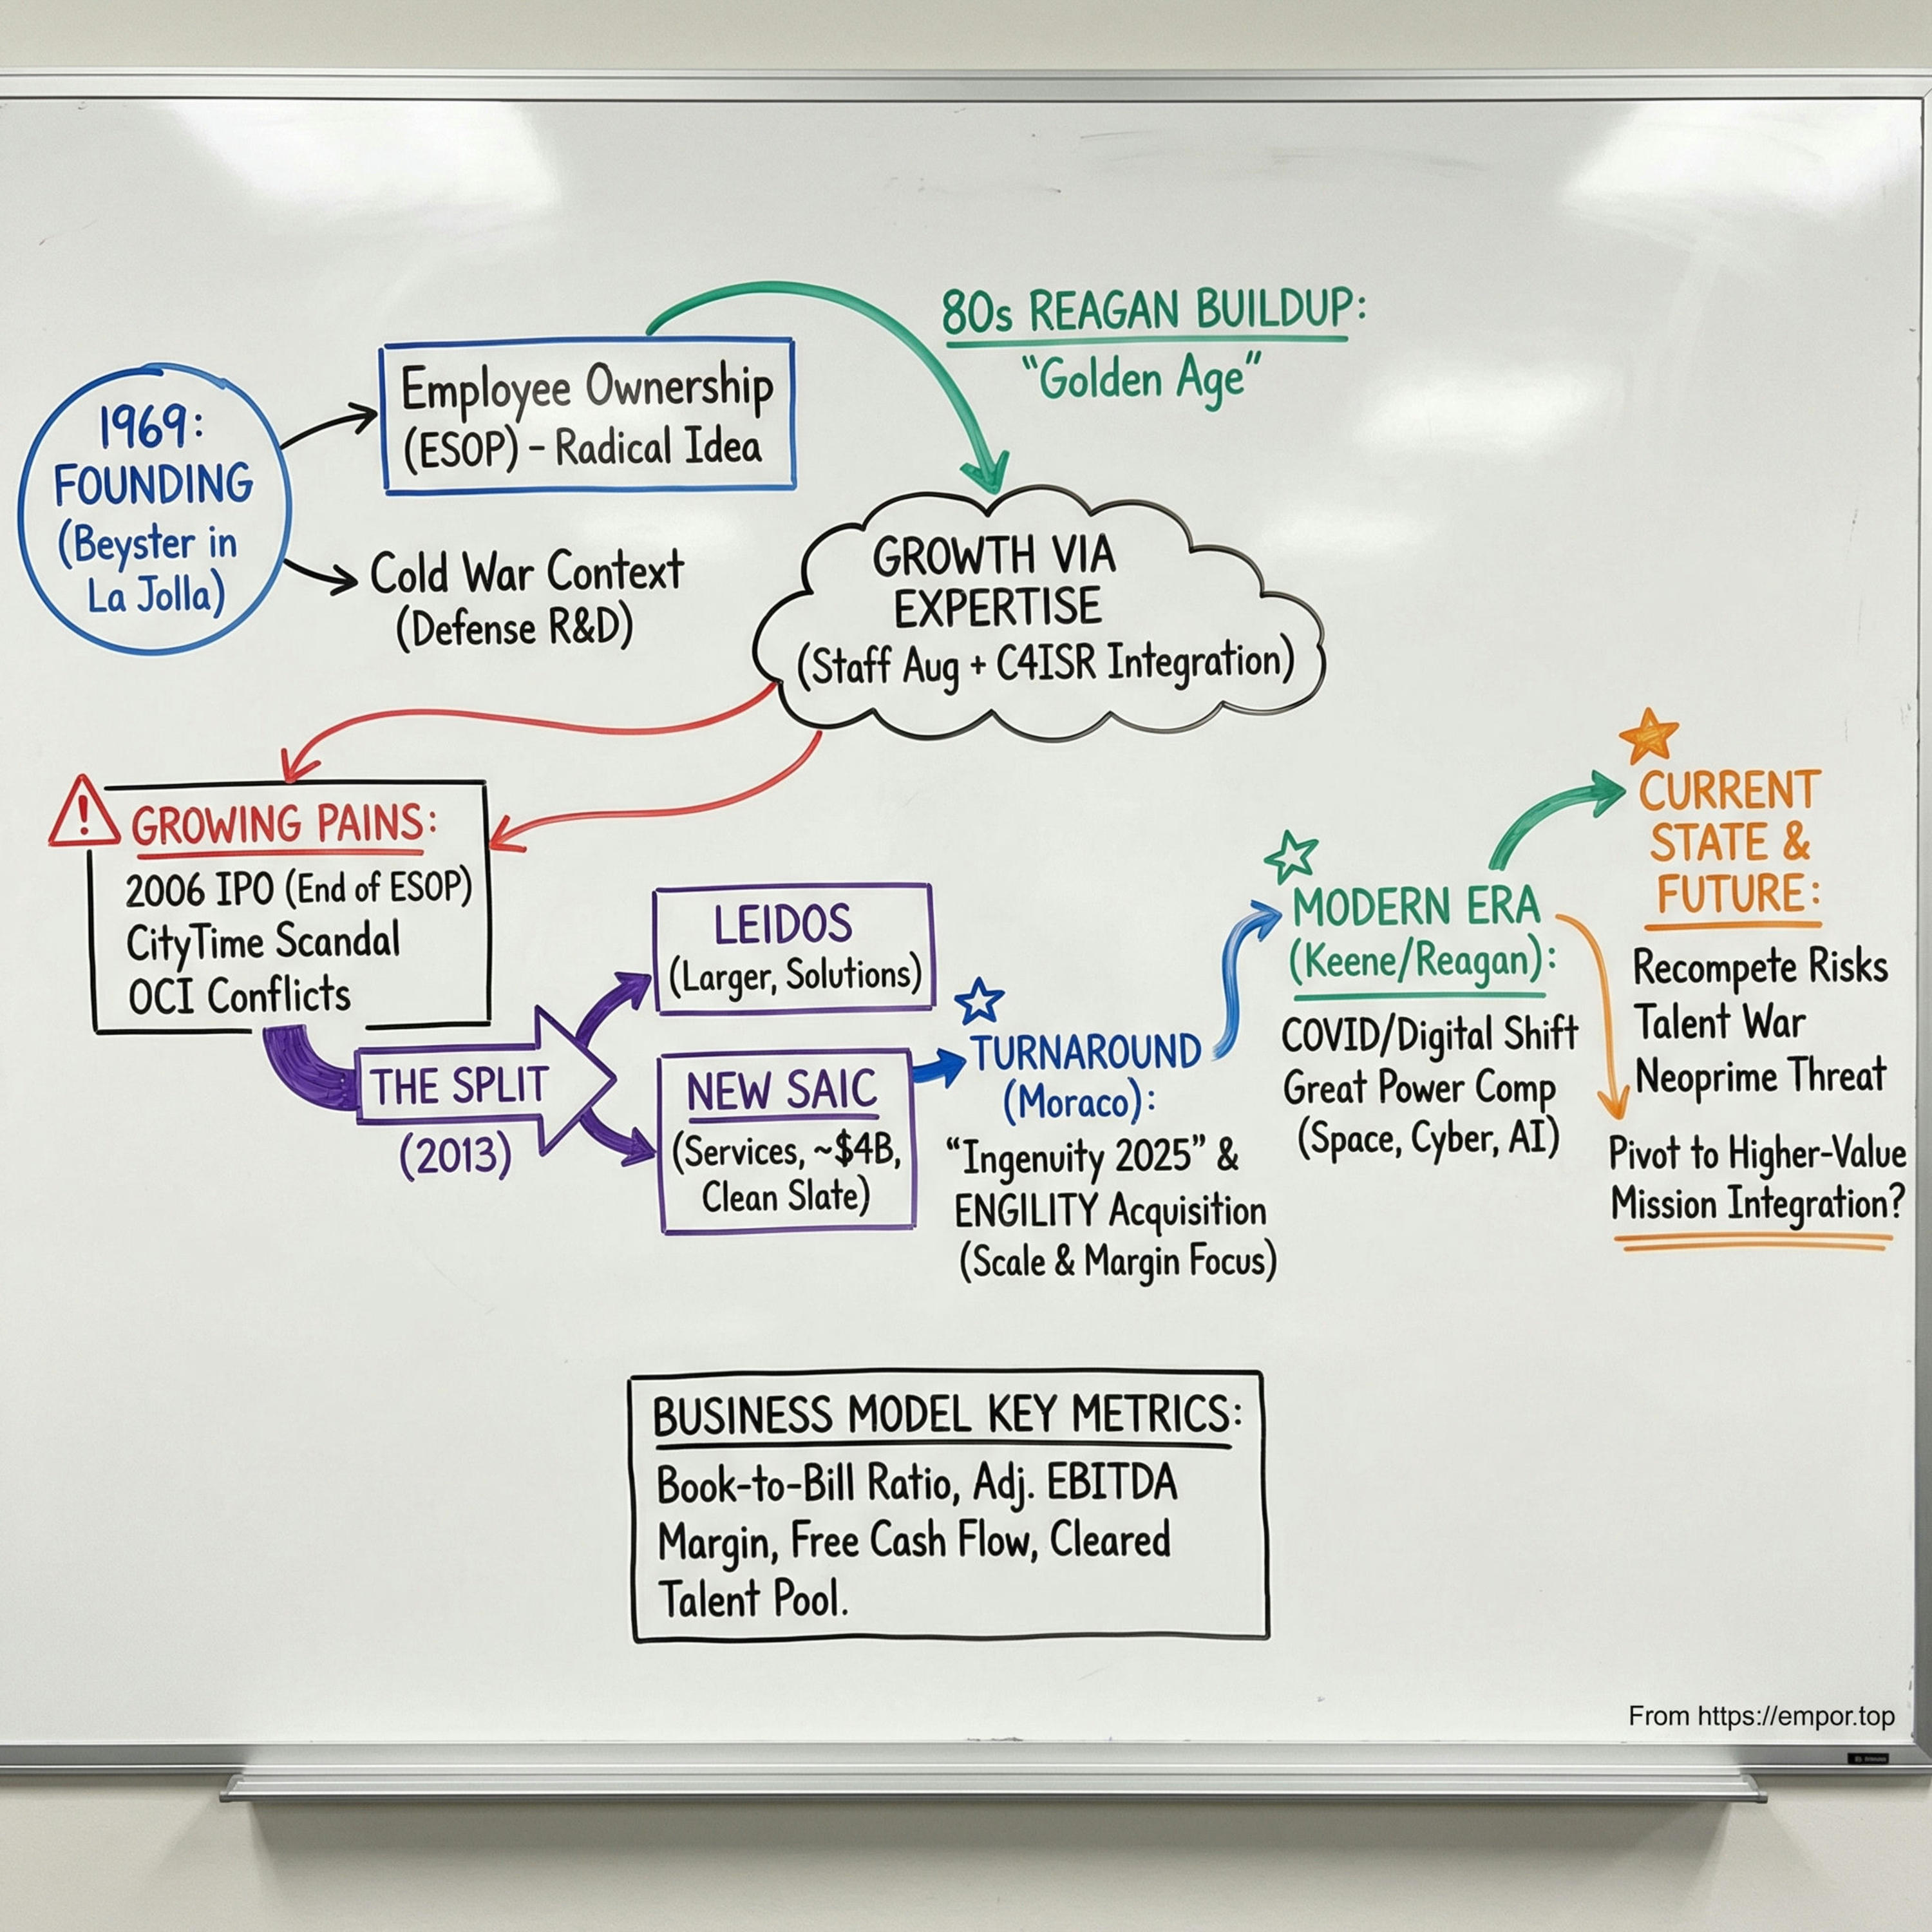 1969:
FOUNDING
(Beyster in
La Jolla)
Employee Ownership
(ESOP) – Radical Idea
Cold War Context
(Defense R&D)
80s REAGAN BUILDUP:
“Golden Age”
GROWTH VIA
EXPERTISE
(Staff Aug + C4ISR Integration)
!
GROWING PAINS:
2006 IPO (End of ESOP)
CityTime Scandal
OCI Conflicts
THE SPLIT
(2013)
LEIDOS
(Larger, Solutions)
NEW SAIC
(Services, ~$4B,
Clean Slate)
TURNAROUND
(Moraco):
“Ingenuity 2025” &
ENGILITY Acquisition
(Scale & Margin Focus)
MODERN ERA
(Keene/Reagan):
COVID/Digital Shift
Great Power Comp
(Space, Cyber, AI)
CURRENT
STATE &
FUTURE:
Recompete Risks
Talent War
Neoprime Threat
Pivot to Higher-Value
Mission Integration?
BUSINESS MODEL KEY METRICS:
Book-to-Bill Ratio, Adj. EBITDA
Margin, Free Cash Flow, Cleared
Talent Pool.
From https://empor.top